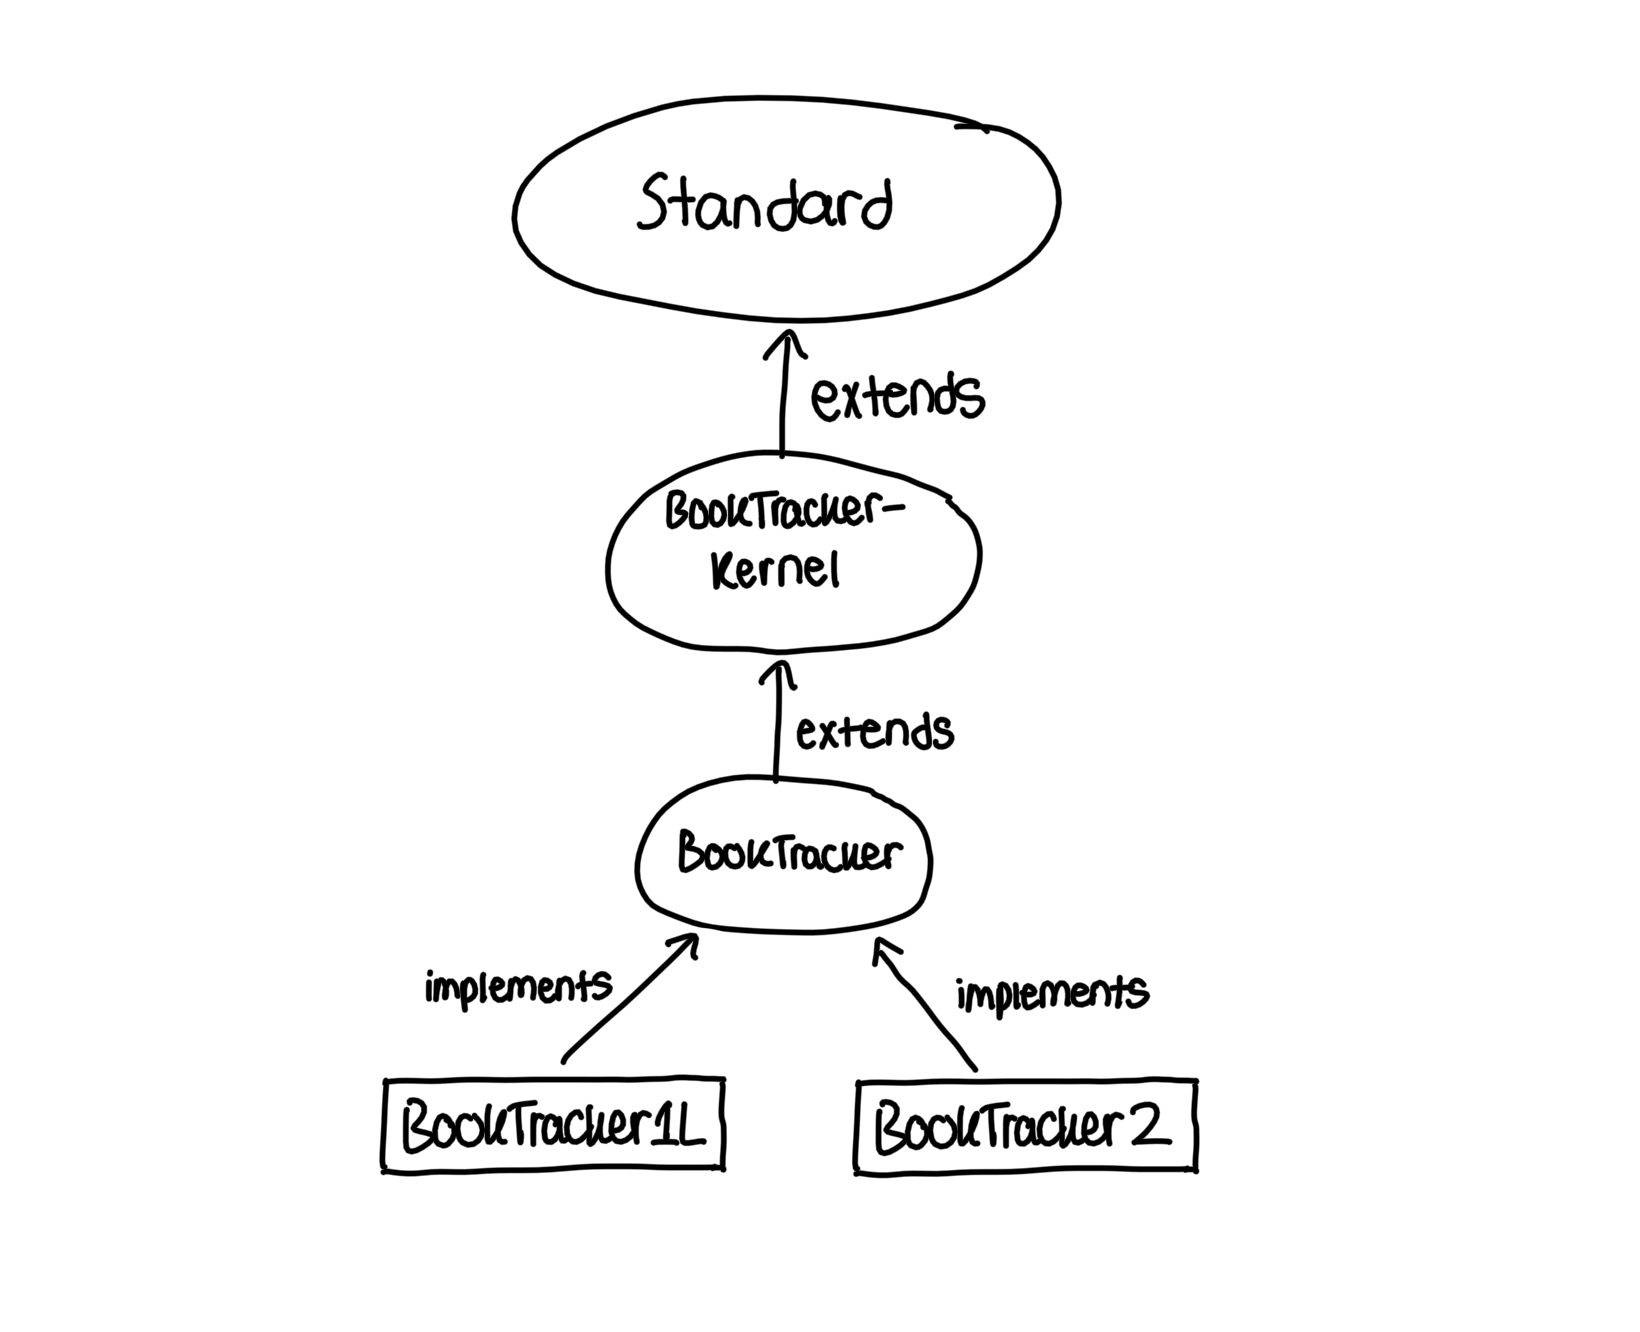 Standard
extends
BookTracker-
Kernel
extends
BookTracker
implements
implements
BookTracker1L
BookTracker2